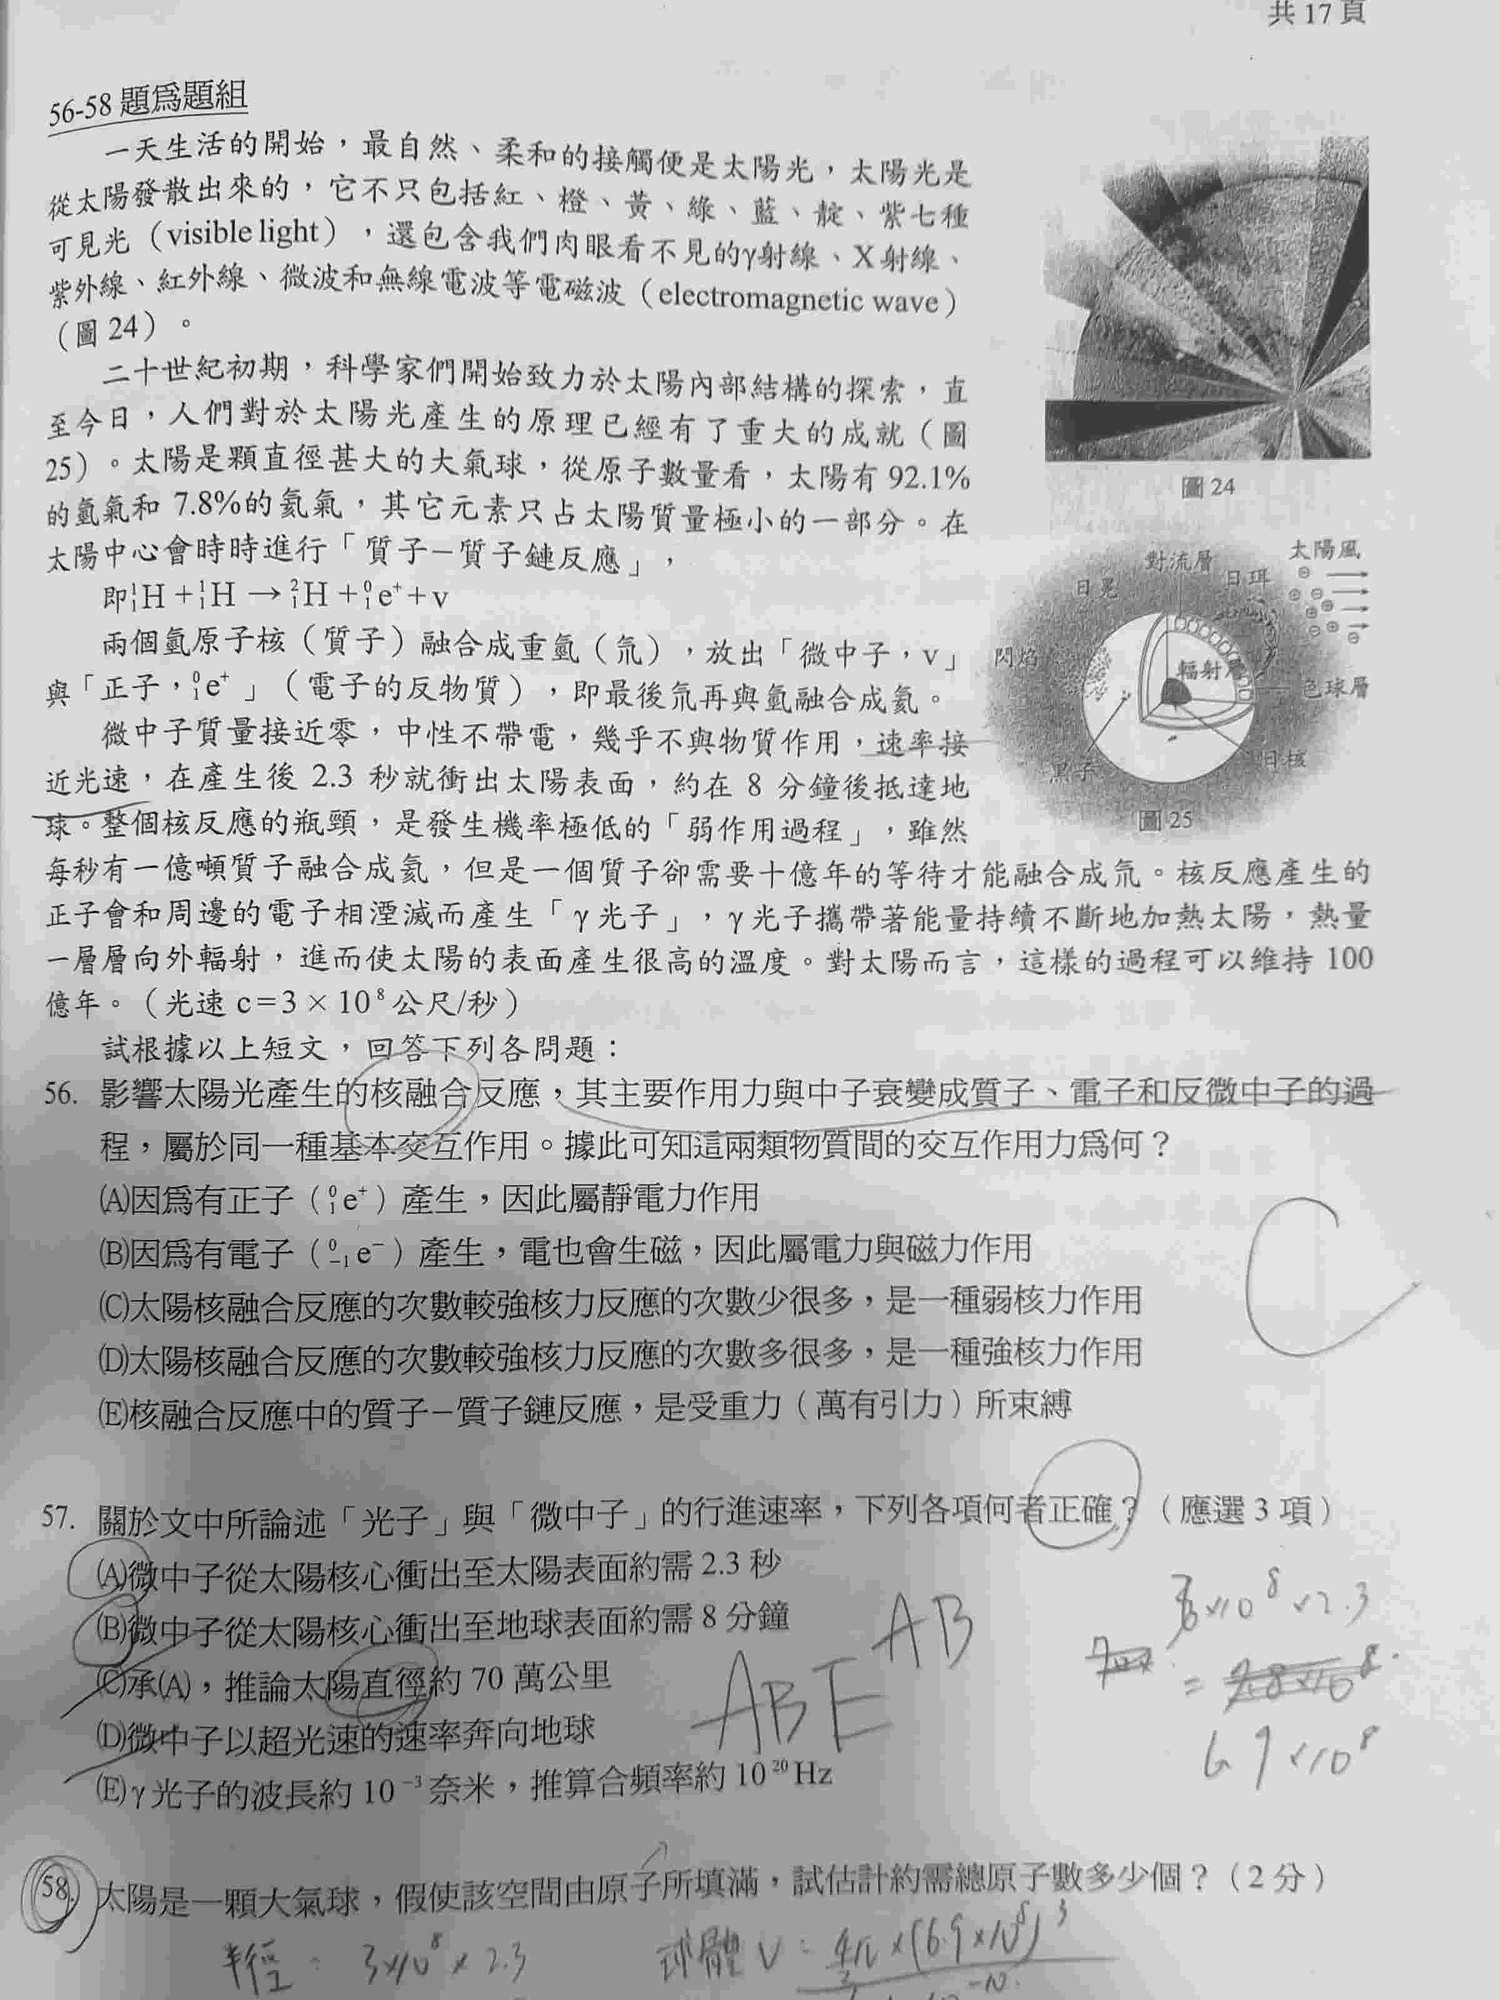 共 17 頁
56-58 題為題組
一天生活的開始，最自然、柔和的接觸便是太陽光，太陽光是
從太陽發散出來的，它不只包括紅、橙、黃、綠、藍、靛、紫七種
可見光（visible light），還包含我們肉眼看不見的γ射線、X 射線、
紫外線、紅外線、微波和無線電波等電磁波（electromagnetic wave）
（圖 24）。
二十世紀初期，科學家們開始致力於太陽內部結構的探索，直
至今日，人們對於太陽光產生的原理已經有了重大的成就（圖
25）。太陽是顆直徑甚大的大氣球，從原子數量看，太陽有 92.1%
的氫氣和 7.8%的氦氣，其它元素只占太陽質量極小的一部分。在
太陽中心會時時進行「質子－質子鏈反應」，
即¹₁H + ¹₁H → ²₁H + ⁰₁e⁺ + v
兩個氫原子核（質子）融合成重氫（氘），放出「微中子，v」
與「正子，⁰₁e⁺」（電子的反物質），即最後氘再與氫融合成氦。
微中子質量接近零，中性不帶電，幾乎不與物質作用，速率接
近光速，在產生後 2.3 秒就衝出太陽表面，約在 8 分鐘後抵達地
球。整個核反應的瓶頸，是發生機率極低的「弱作用過程」，雖然
每秒有一億噸質子融合成氦，但是一個質子卻需要十億年的等待才能融合成氘。核反應產生的
正子會和周邊的電子相湮滅而產生「γ 光子」，γ 光子攜帶著能量持續不斷地加熱太陽，熱量
一層層向外輻射，進而使太陽的表面產生很高的溫度。對太陽而言，這樣的過程可以維持 100
億年。（光速 c＝3 × 10⁸ 公尺/秒）
圖 24
太陽風
對流層
日珥
日冕
閃焰
輻射層
色球層
日核
黑子
圖 25
試根據以上短文，回答下列各問題：
56. 影響太陽光產生的核融合反應，其主要作用力與中子衰變成質子、電子和反微中子的過
程，屬於同一種基本交互作用。據此可知這兩類物質間的交互作用力為何？
(A)因為有正子（⁰₁e⁺）產生，因此屬靜電力作用
(B)因為有電子（⁰₋₁e⁻）產生，電也會生磁，因此屬電力與磁力作用
(C)太陽核融合反應的次數較強核力反應的次數少很多，是一種弱核力作用
(D)太陽核融合反應的次數較強核力反應的次數多很多，是一種強核力作用
(E)核融合反應中的質子－質子鏈反應，是受重力（萬有引力）所束縛
C
57. 關於文中所論述「光子」與「微中子」的行進速率，下列各項何者正確？（應選 3 項）
(A)微中子從太陽核心衝出至太陽表面約需 2.3 秒
(B)微中子從太陽核心衝出至地球表面約需 8 分鐘
(C)承(A)，推論太陽直徑約 70 萬公里
(D)微中子以超光速的速率奔向地球
(E) γ 光子的波長約 10⁻³ 奈米，推算合頻率約 10²⁰ Hz
AB
ABE
3×10⁸ ×2.3
=
6.9×10⁸
58. 太陽是一顆大氣球，假使該空間由原子所填滿，試估計約需總原子數多少個？（2 分）
半徑： 3×10⁸ × 2.3
球體 V = 4π×(6.9×10⁸)³